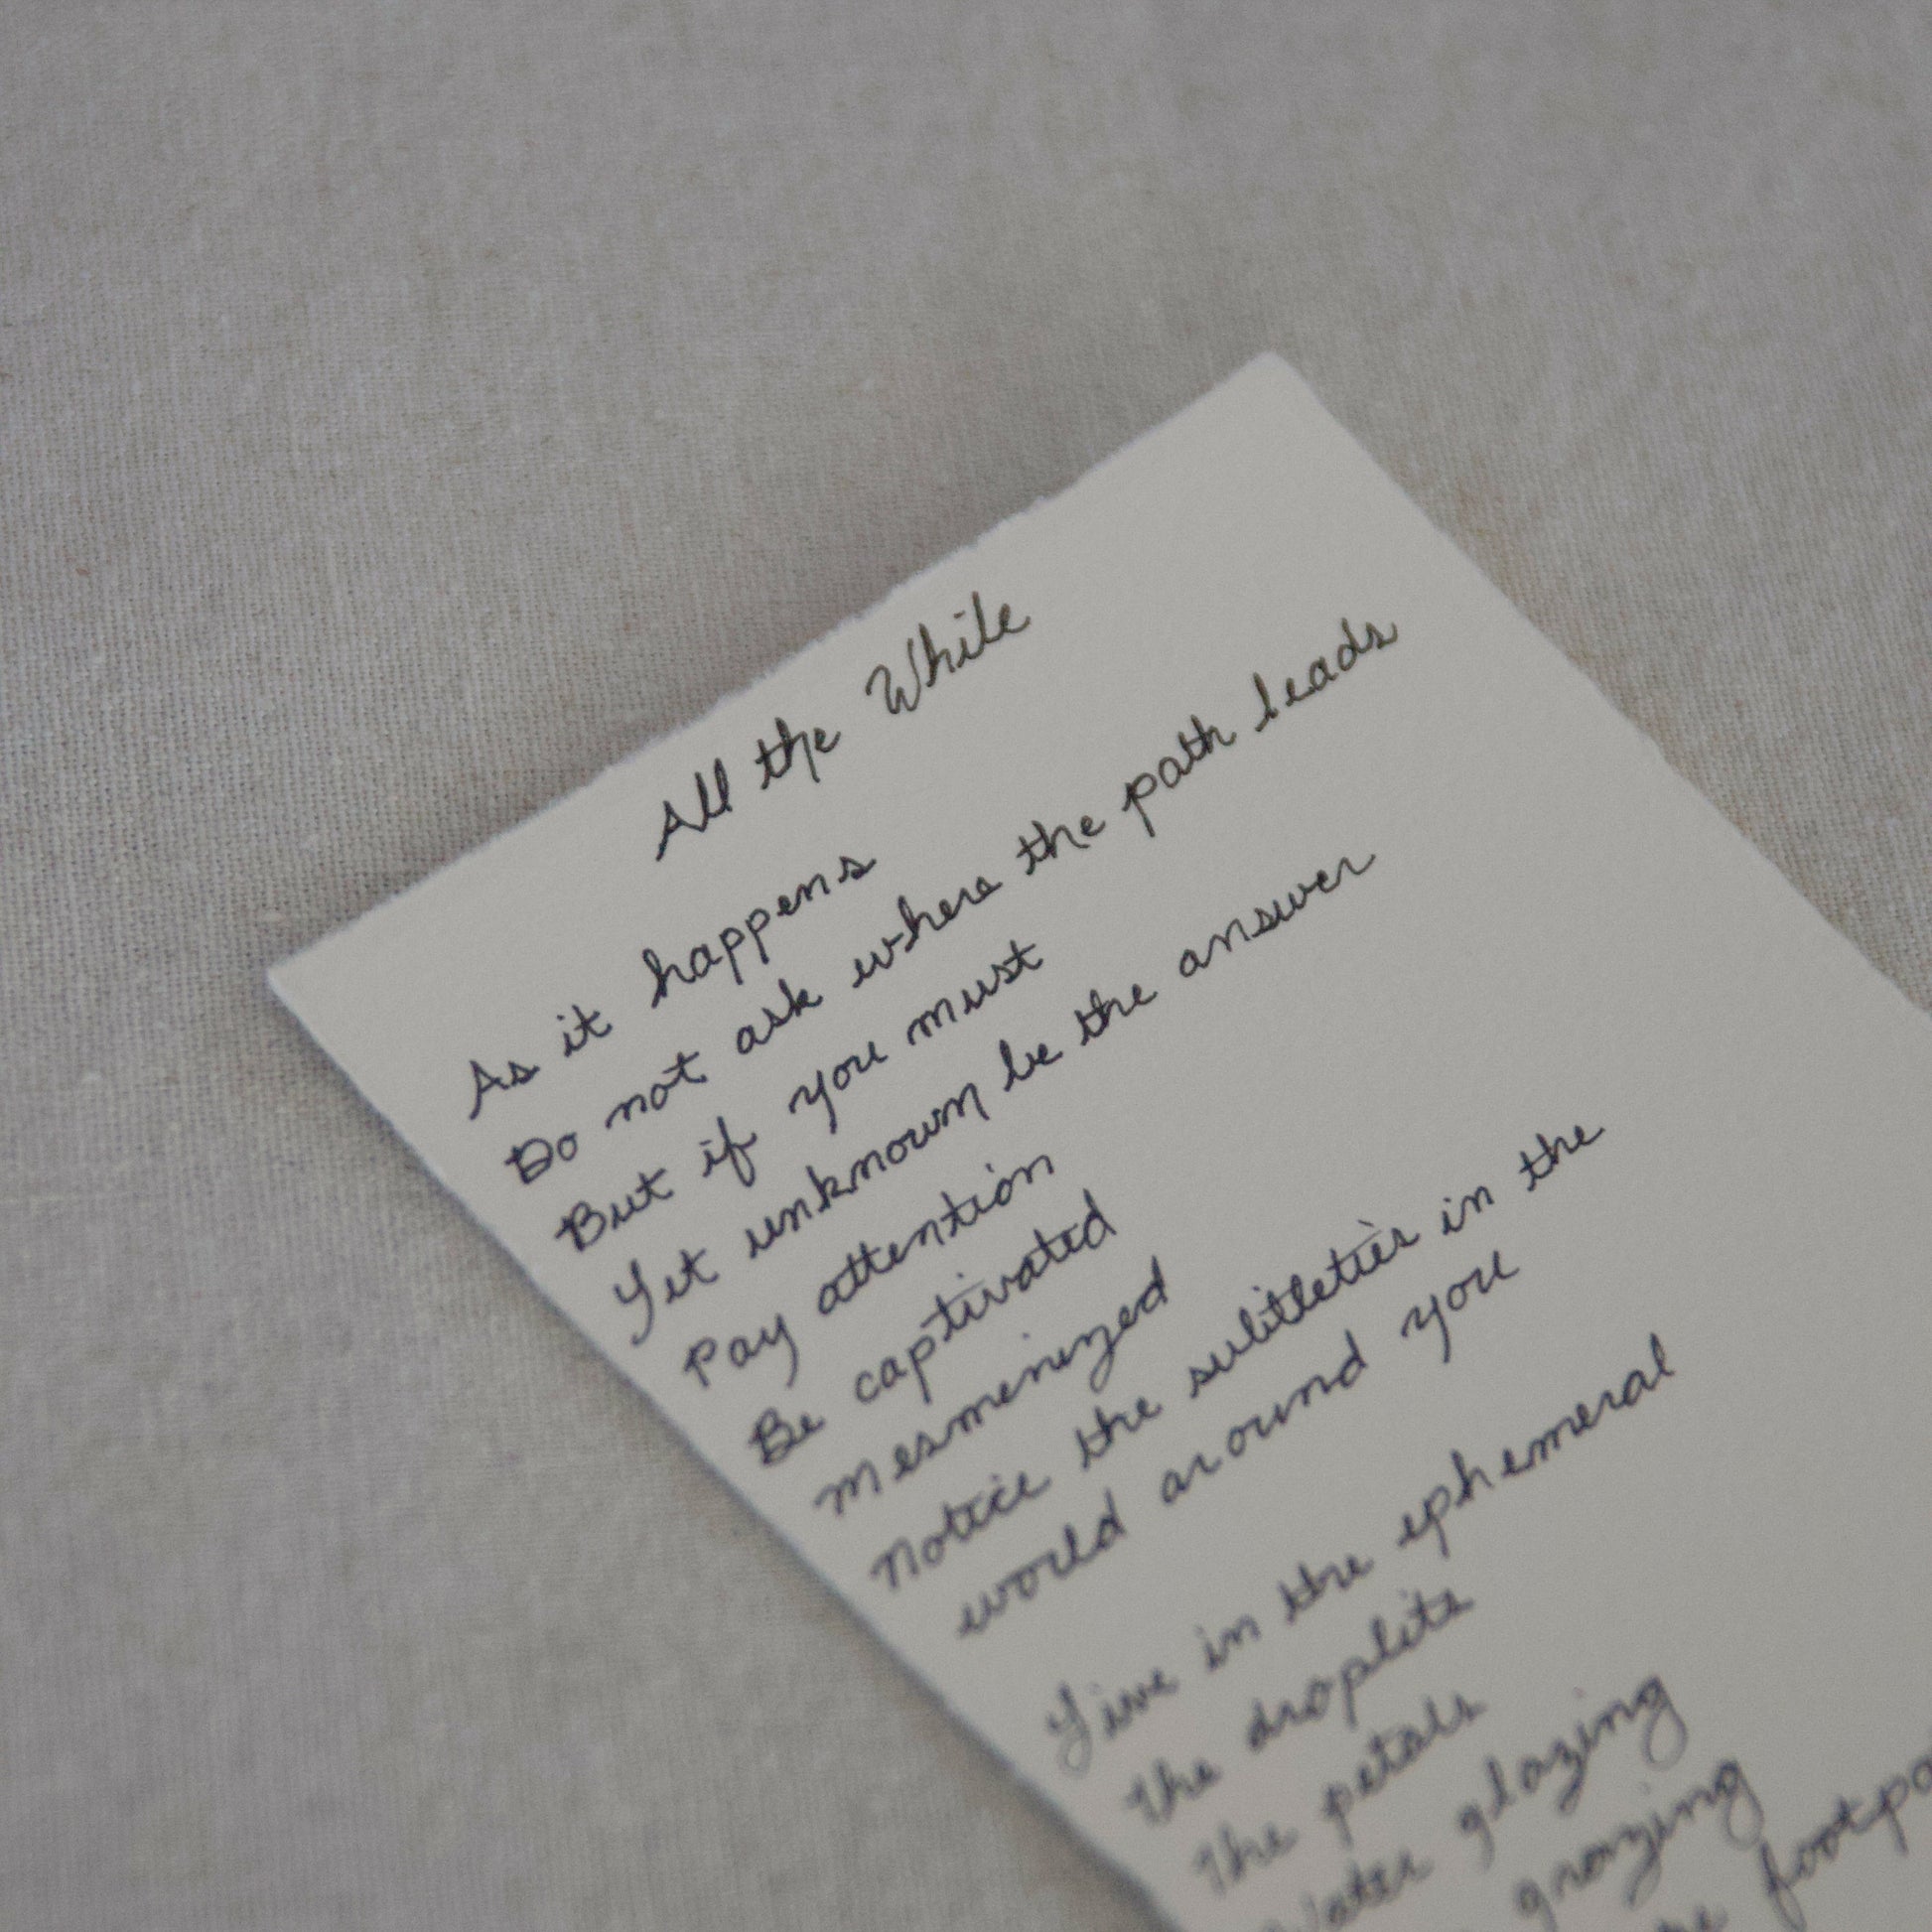 All the While
As it happens
Do not ask where the path leads
But if you must
Yet unknown be the answer
Pay attention
Be captivated
Mesmerized
Notice the subtleties in the
world around you
Live in the ephemeral
The droplets
The petals
Water glazing
grazing